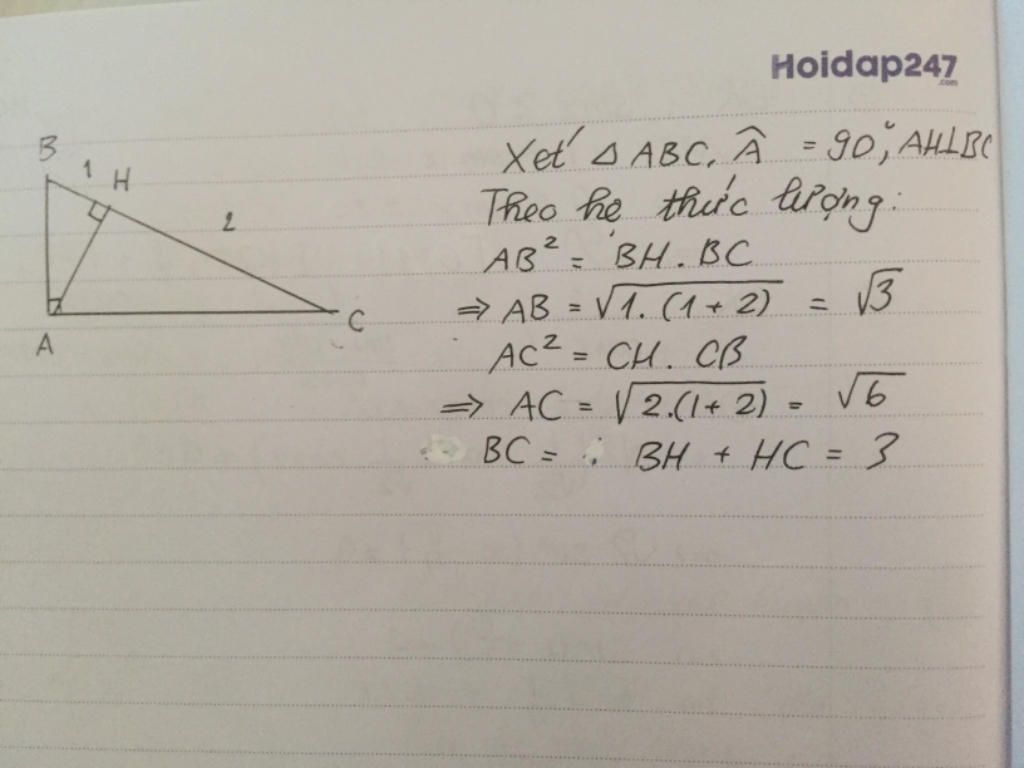 Hoidap247
.com
B
1
H
2
A
C
Xét △ ABC, Â = 90°, AH⊥BC
Theo hệ thức lượng:
AB² = BH . BC
⇒ AB = √1.(1+2) = √3
AC² = CH . CB
⇒ AC = √2.(1+2) = √6
BC = BH + HC = 3